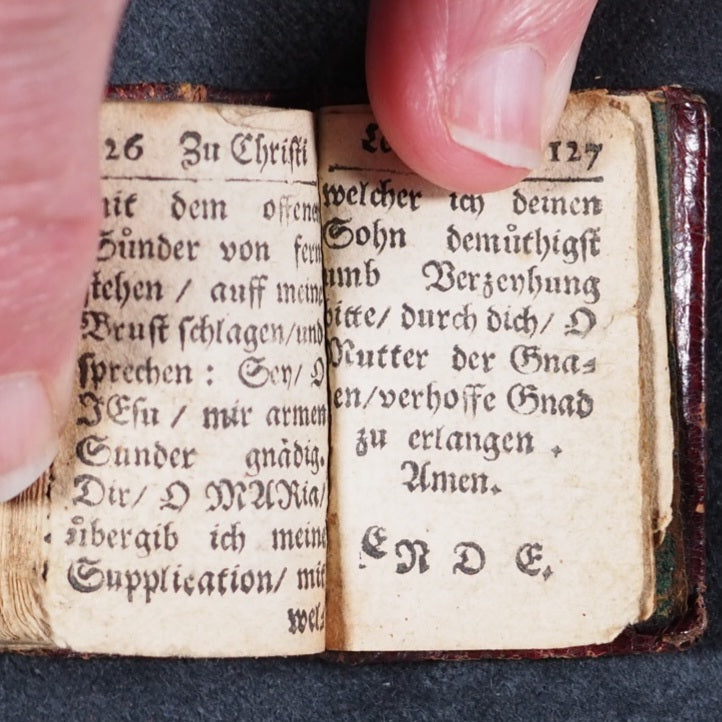 26 Zu Chriſti
mit dem offenen
Sůnder von fern
ſtehen / auff meine
Bruſt ſchlagen/und
ſprechen : Sey/ O
JEſu / mir armen
Sunder gnädig.
Dir/ O MARia/
ůbergib ich meine
Supplication/ mit
wel⸗
127
welcher ich deinen
Sohn demůthigſt
umb Verzeyhung
bitte/ durch dich/ O
Mutter der Gna⸗
en/verhoffe Gnad
zu erlangen .
Amen.
ENDE.